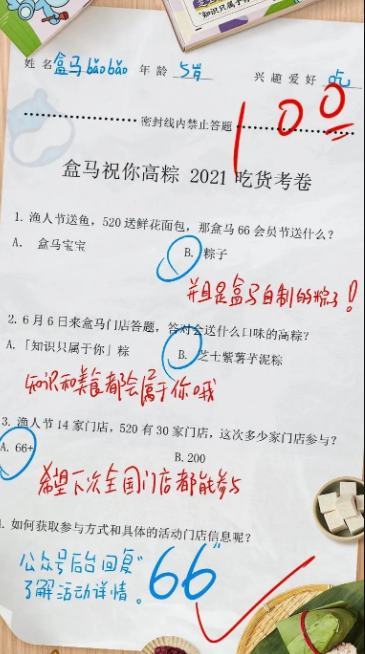 "知识只属于你"
姓 名 盒马bǎobǎo 年 龄 5岁 兴 趣 爱 好 吃
100
密封线内禁止答题
盒马祝你高粽 2021 吃货考卷
1. 渔人节送鱼，520 送鲜花面包，那盒马 66 会员节送什么？
A. 盒马宝宝 B. 粽子
并且是盒马自制的粽子！
2. 6 月 6 日来盒马门店答题，答对会送什么口味的高粽？
A. 「知识只属于你」粽 B. 芝士紫薯芋泥粽
知识和美食都会属于你哦
3. 渔人节 14 家门店，520 有 30 家门店，这次多少家门店参与？
A. 66+ B. 200
希望下次全国门店都能参与
. 如何获取参与方式和具体的活动门店信息呢？
公众号后台回复"66"
了解活动详情。